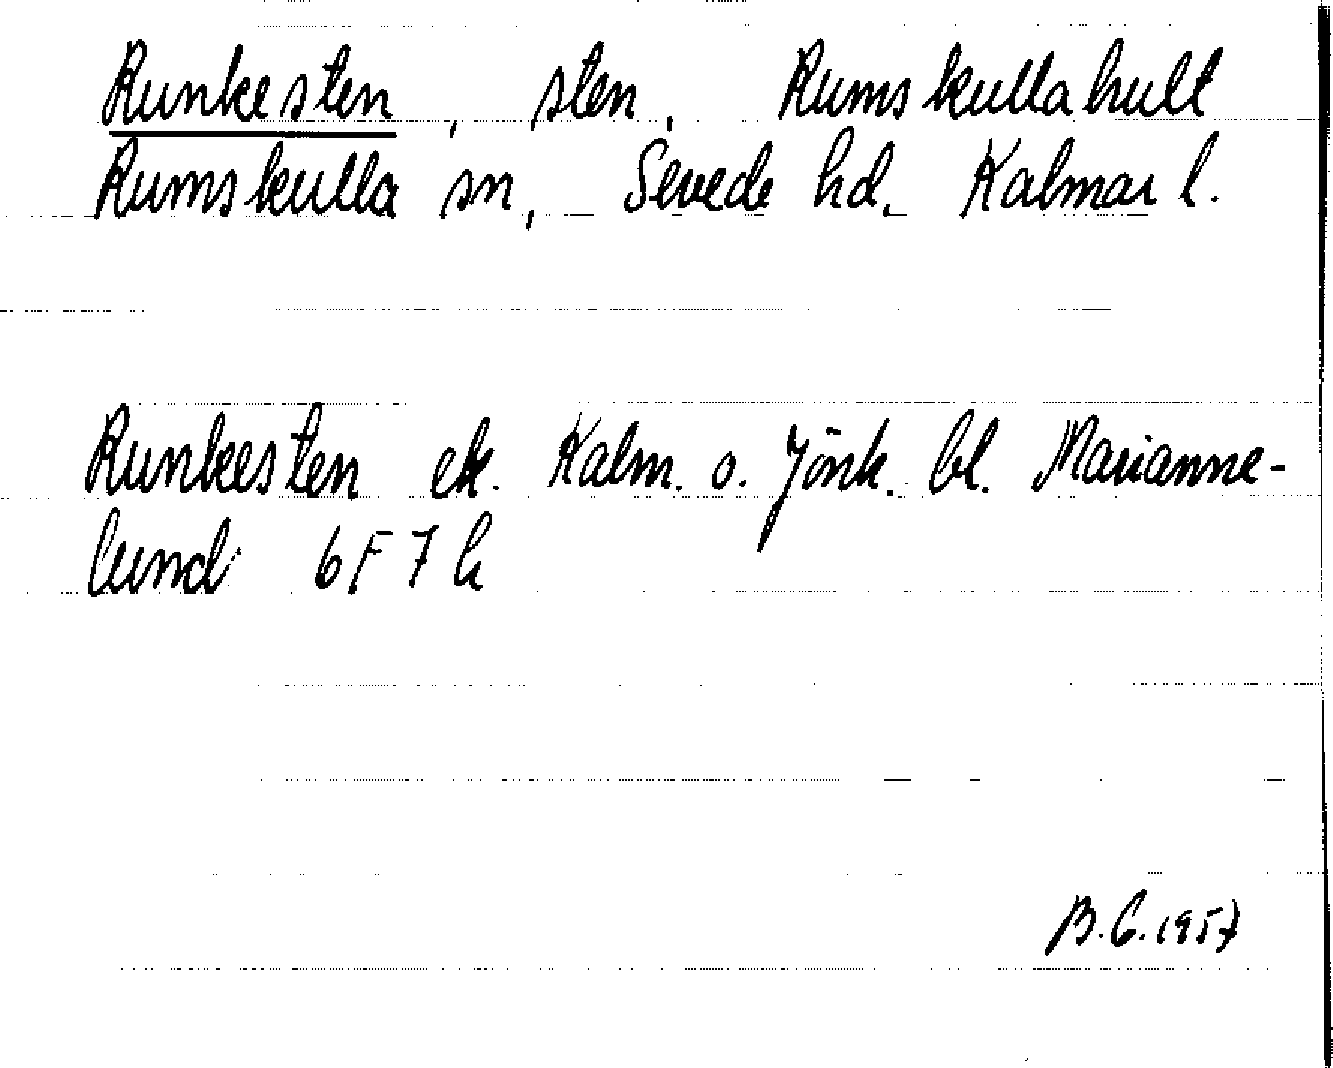 Runkesten, sten, Rumskullahult
Rumskulla sn, Sevede hd. Kalmar l.
Runkesten ek. Kalm. o. Jönk. bl. Marianne-
lund 6F7h
B.G.1957